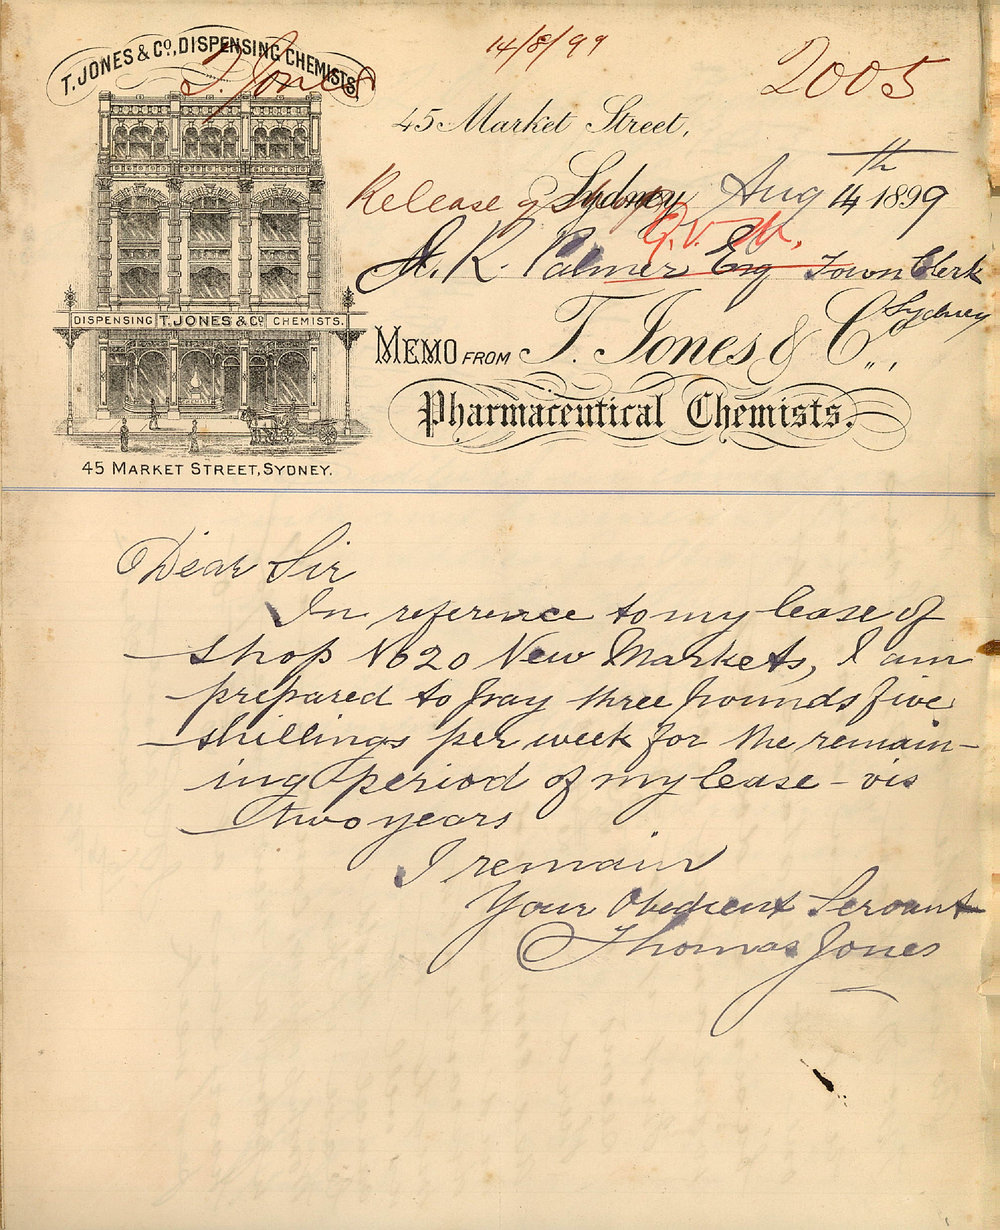 T. JONES & Co., DISPENSING CHEMISTS
T. Jones
14/8/99
2005
45 Market Street,
Release of Shop
Sydney Aug 14th 1899
G.V.
H. K. Palmer Esq Town Clerk
Sydney
MEMO FROM T. Jones & Co.,
Pharmaceutical Chemists.
DISPENSING T. JONES & Co. CHEMISTS.
45 MARKET STREET, SYDNEY.
Dear Sir
In reference to my lease of
shop No 20 New Markets, I am
prepared to pay three pounds five
shillings per week for the remain-
ing period of my lease - vis
two years
I remain
Your Obedient Servant
Thomas Jones